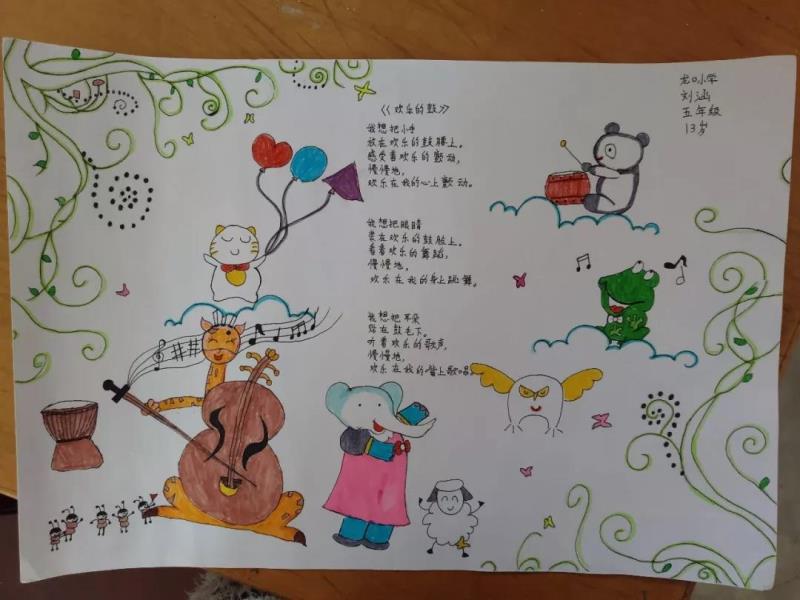 《欢乐的鼓》
我想把小手
放在欢乐的鼓腰上。
感受着欢乐的颤动,
慢慢地,
欢乐在我的心上颤动。
我想把眼睛
丢在欢乐的鼓脸上。
看着欢乐的舞蹈,
慢慢地,
欢乐在我的身上跳舞。
我想把耳朵
贴在鼓毛下。
听着欢乐的歌声,
慢慢地,
欢乐在我的嘴上歌唱。
龙口小学
刘涵
五年级
13岁